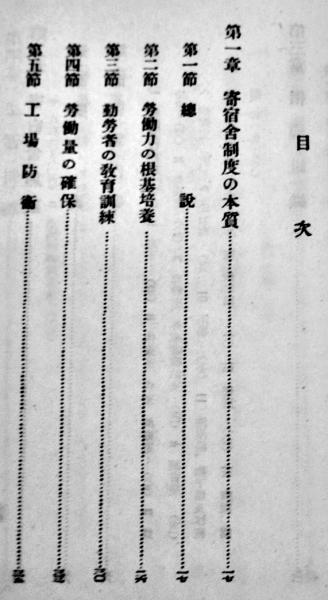 目次
第一章 寄宿舍制度の本質
第一節 總說
第二節 勞働力の根基培養
第三節 勤勞者の敎育訓練
第四節 勞働量の確保
第五節 工場防衞